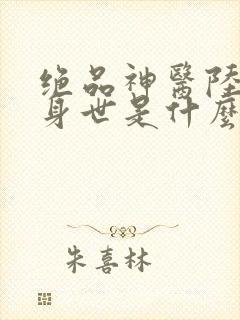 绝品神醫陸
身世是什麼
朱喜林